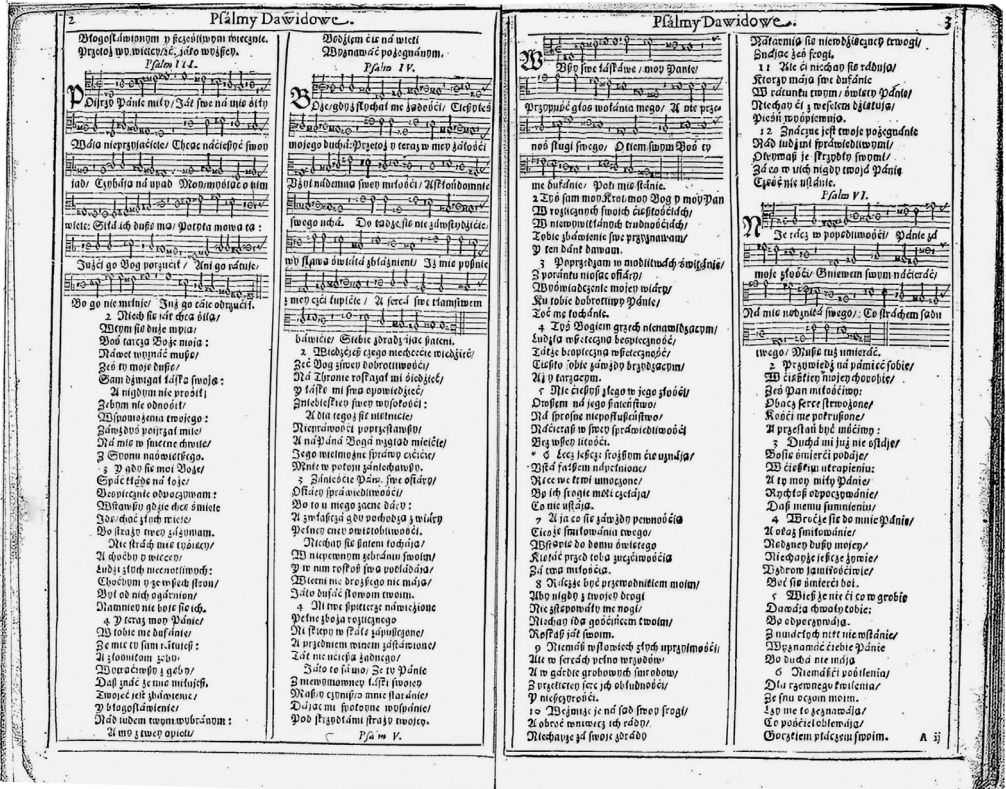 2
Psálmy Dawidowe.
Błogosłáwionym y szczęśliwym wiecznie.
Psalm III.
Pojrzy Pánie miły/ Ják swe ná mię
Wáła nieprzyiaćiele/ Chcąc náćieszyć swoy
jad/ Czyháją ná upad
wiele: Siłá ich duszę ma/ Potyka mową tą:
Jużći go Bog porzućił/ Ani go rátuje/
Bo go nie miłuje/ Już go cále odrzućił.
2 Niech się ják chcą
Wszym się duże mylą/
Boś tarczą Boże moją:
Náwet wyznáć muszę/
Żeś ty moję duszę/
Sam dźwigał łáską swoją:
A nigdym nie prośił/
Żebym nie odnośił/
Wspomożenia twojego:
Záwżdyś pojrzał mile/
Ná mię w smutne chwile/
Z Syonu naświetszego.
3 Y gdy się moj Boże/
Spáć kłádę ná łoże/
Bezpiecznie odpoczywam:
Wstawszy gdzie chcę śmiele
Idę/ choć złych wiele/
Bo straży twey záżywam.
Nie strách mię tyśięcy/
A choćby y więcey/
Ludzi złych niecnotliwych:
Choćbym y ze wszech stron/
Był od nich ogárnion/
Namniey nie boję się ich.
4 Y teraz moy Pánie/
W tobie me dufánie/
Że mię ty sam rátujesz:
A złośnikom zęby/
Wytrąćiwszy z gęby/
Dasz znáć że mię miłujesz.
Twojeć jest zbáwienie/
Y błogosłáwienie/
Nád ludem twym wybránym:
A my z twey opieki/
Będziem ćię ná wieki
Wyznawáć pożegnánym.
Psalm IV.
Boże/ gdyż słychał me żádośći/ Ćieszyłeś
mojego duchá: Przetoż y teraz w mey żáłośći
Użyi nádemną swey miłośći/ A skłoń do mnie
swego uchá. Do tądże się nie záwstydzićie/
wy sława świátá zbłaźnieni/ Iż mię podnie
z mey czći łupićie/ A sercá swe kłamstwem
báwićie/ Siebie zdrádzájąc sáleni.
2 Wiedzcież czego niechcećie wiedzieć/
Żeć Bog żiwey dobrotliwośći/
Ná Thronie roskazał mi śiedzieć/
Y łáskę mi swą opowiedzieć/
Z niebieskiey swey wysokośći:
A dla tegoż się ulęknićie/
Niepráwośći poprzestawszy/
A ná Páná Bogá wzgląd mieyćie/
Jego wielmożne spráwy
Mnie w pokoju zániechawszy.
3 Zánieśćie Pánu swe ofiáry/
Ofiáry spráwiedliwośći/
Bo to u niego zacne dáry:
A zwłaszczá gdy pochodzą z wiáry
Pełney chęći świętobliwośći.
Niechay się śáleni kocháją/
W niepewnym zebrániu swoim/
Y w nim roskosz swą pokłádáją/
Wierni nic droższego nie máją/
Jáko dufáć słowom twoim.
4 Ni twe spiżárze náwiezione
Pełne zbożá rozlicznego
Ni sklepy w skále zápuszczone/
A przednim winem zástáwione/
Ták nie ućieszą żadnego/
Jáko to sámo/ Że ty Pánie
Z niewymowney łáski swojey
Masz y czynisz o mnie stáránie/
Dájąc mi spokoyne wyspánie/
Pod skrzydłámi straży twojey.
Psalm V.
Psálmy Dawidowe.
3
Wszy swe łáskáwe/ moy Pánie/
Przypuść głos wołánia mego/ A nie prze-
noś sługi swego/ O tiem swym Boś ty
me dufánie/ Poki mię stánie.
2 Tyś sam moy Krol moy Bog y moy Pan
W rozlicznych swoich ćięszkośćiách/
W niewywikłánych trudnośćiách/
Tobie zbáwienie swe przyznawam/
Y ten dánk dawam.
3 Poprzedzam w modlitwách świtánie/
Z poránku niosąc ofiáry/
Wyświadczenie mojey wiáry/
Ku tobie dobrotliwy Pánie/
Toć me kochánie.
4 Tyś Bogiem grzech nienawidzącym/
Ludzką wszeteczną bespieczność/
Tákże bespieczną wszeteczność/
Ćięszko sobie záwżdy brzydzącym/
Aż y kárzącym.
5 Nie ćieszysz złego w jego złośći/
Owszem ná jego száleństwo/
Ná sprosne nieposłuszeństwo/
Náćierasz w swey spráwiedliwośći
Bez wszey litośći.
6 Lecz jeszcze sroższym ćię uznáją/
Ustá fałszem nápełnione/
Ręce we krwi umoczone/
Bo ich srogie męki czekáją/
Co nie ustáją.
7 A ja co się záwżdy pewnośćią
Ćieszę smiłowánia twego/
Wstąpię do domu świętego
Klękáć przed tobą uczćiwośćią
Zá twą miłośćią.
8 Ráczże być przewodnikiem moim/
Aby nigdy z twojey drogi
Nie zstępowáły me nogi/
Niechay idą gośćińcem twoim/
Roskaż ják swoim.
9 Niemász w słowiech złych uprzymośći/
Ale w sercách pełno wrzodow/
A w gárdle grobowych smrodow/
Z przeklętey serc ich obłudnośći/
Y nieszczyrośći.
10 Weźmiże je ná sąd swoy srogi/
A obroć wniwecz ich rády/
Niechayże zá swoje zdrády
Nákarmią się niewdzięczney trwogi/
Znájąc żeś srogi.
11 Ale ći niechay się rádują/
Ktorzy máją swe dufánie
W rátunku twym/ święty Pánie/
Niechay ći z weselem dziękują/
Pieśni wyśpiewują.
12 Znáczne jest twoje pożegnánie
Nád ludźmi spráwiedliwymi/
Okrywasz je skrzydły swymi/
Zá co w nich nigdy twojá Pánie
Cześć nie ustánie.
Psalm VI.
Nie rácz w popędliwośći/ Pánie zá
moje złośći/ Gniewem swym náćieráć/
Ná mię niebożá swego/: Co stráchem sądu
twego/ Muszę tuż umieráć.
2 Przywiedź ná pámięć sobie/
W ćięszkiey mojey chorobie/
Żeś Pan miłośćiwy:
Obacz serce strwożone/
Kośći me pokruszone/
A przestań być mśćiwy:
3 Duchá mi już nie ostáje/
Boleść śmierći podáje/
W ćięszkim utrapieniu:
A ty moy miły Pánie/
Rychłoż odpoczywánie/
Dasz memu sumnieniu/
4 Wroćże się do mnie Pánie/
A okaż smiłowánie/
Nędzney duszy mojey/
Niechayże jeszcze żywie/
Wzdrow ją miłośćiwie/
Boć się śmierći boi.
5 Wiesz że nie ći co w grobie
Dawáją chwały tobie:
Bo odpoczywáją.
Z umárłych nikt nie wstánie/
Wyznawáć ćiebie Pánie
Bo duchá nie máją
6 Niemászći pośilenia/
Dla rzewnego kwilenia/
Ze snu oczom moim.
Łzy me to zeznawáją/
Co pośćiel oblewáją/
Gorzkiem płáczem swoim.
A ij